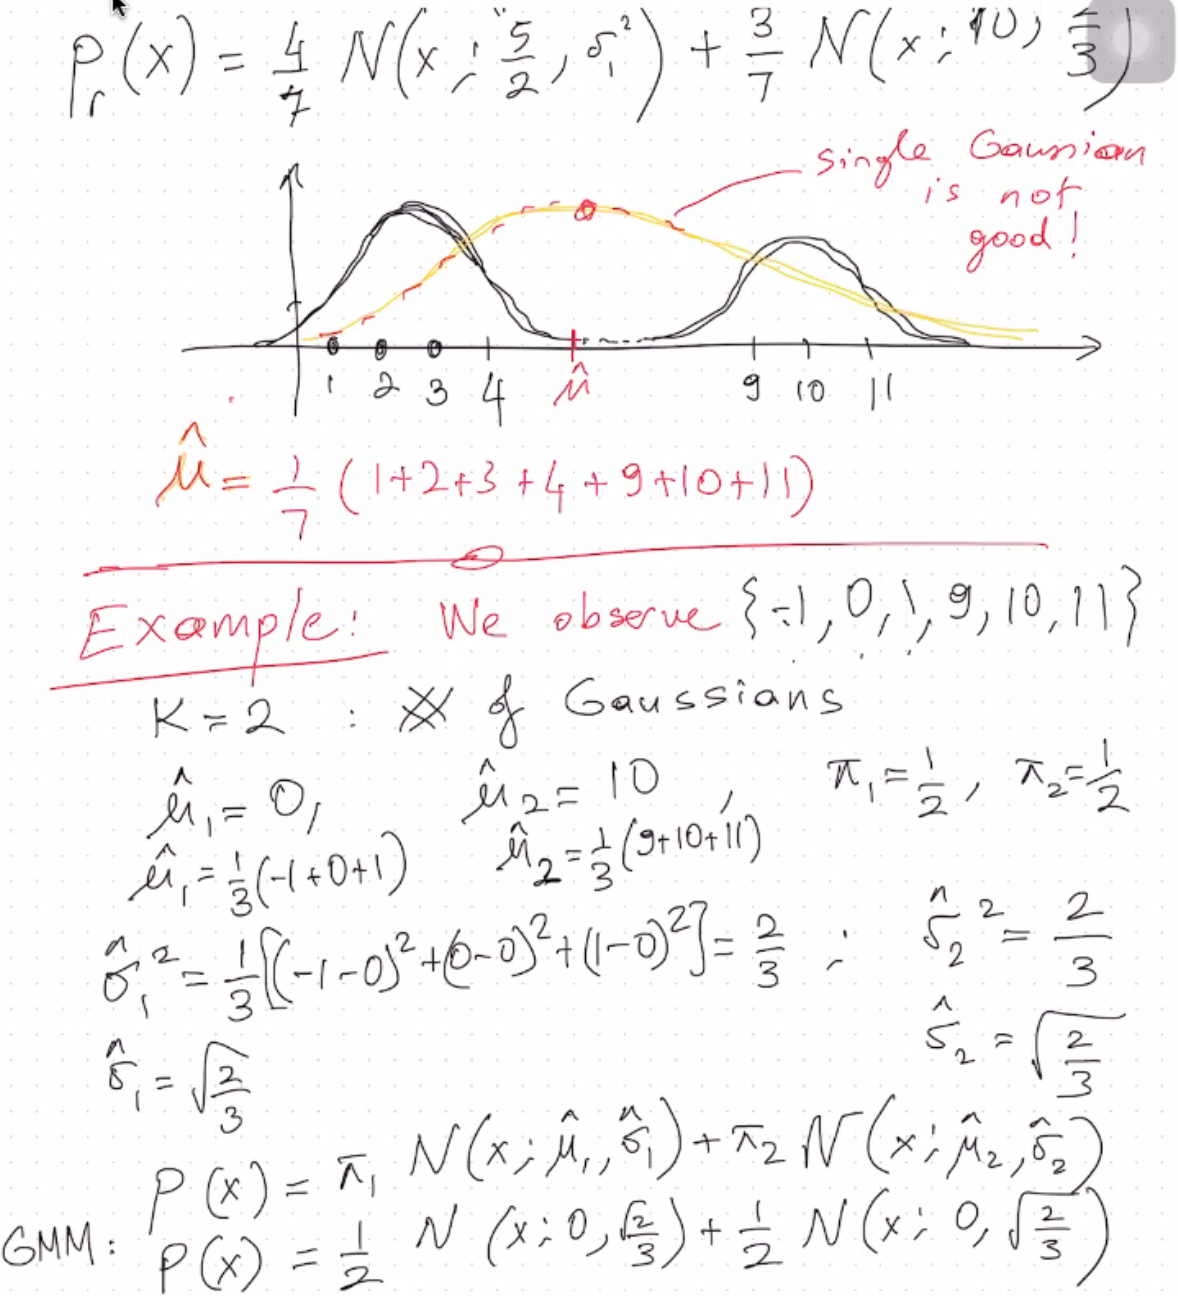 Pr(x) = 4/7 N(x; 5/2, σ₁²) + 3/7 N(x; 10, 2/3)
single Gaussian
is not
good!
1 2 3 4 μ̂ 9 10 11
μ̂ = 1/7 (1+2+3+4+9+10+11)
Example: We observe {-1, 0, 1, 9, 10, 11}
K=2 : # of Gaussians
μ̂₁ = 0, μ̂₂ = 10, π₁ = 1/2, π₂ = 1/2
μ̂₁ = 1/3(-1+0+1) μ̂₂ = 1/3(9+10+11)
σ̂₁² = 1/3[(-1-0)²+(0-0)²+(1-0)²] = 2/3 ; σ̂₂² = 2/3
σ̂₁ = √(2/3) σ̂₂ = √(2/3)
P(x) = π₁ N(x; μ̂₁, σ̂₁) + π₂ N(x; μ̂₂, σ̂₂)
GMM: P(x) = 1/2 N(x; 0, √(2/3)) + 1/2 N(x; 0, √(2/3))